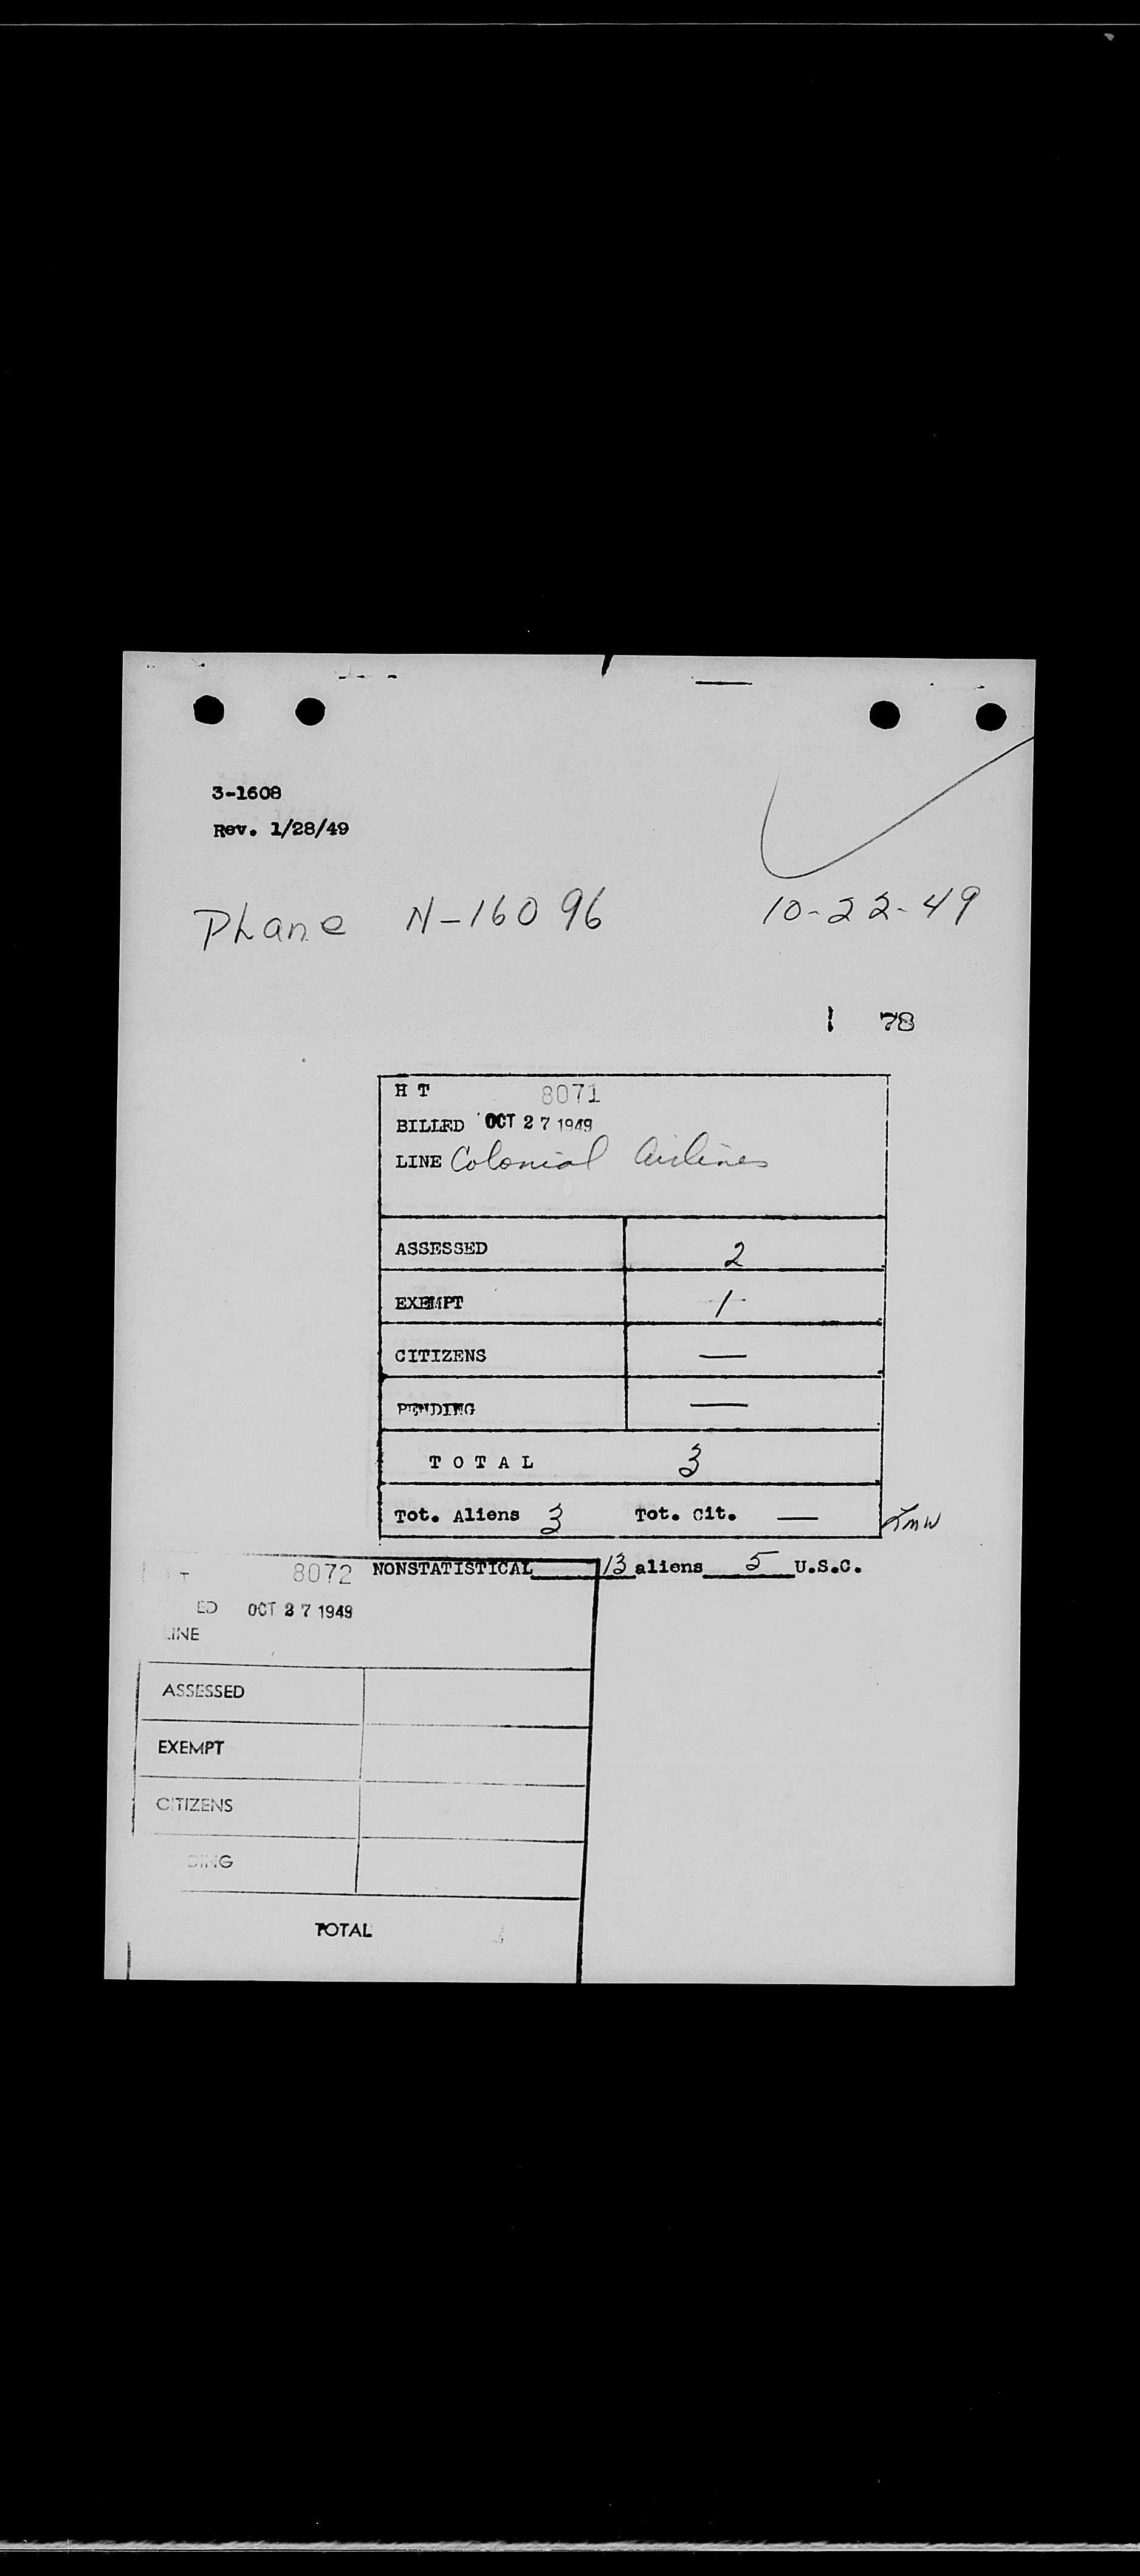 3-1608
Rev. 1/28/49
Plane N-16096 10-22-49
78
H T 8071
BILLED OCT 27 1949
LINE Colonial Airlines
ASSESSED 2
EXEMPT 1
CITIZENS —
PENDING —
TOTAL 3
Tot. Aliens 3 Tot. Cit. —
NONSTATISTICAL 13 aliens 5 U.S.C.
T 8072
ED OCT 27 1949
LINE
ASSESSED
EXEMPT
CITIZENS
DING
TOTAL